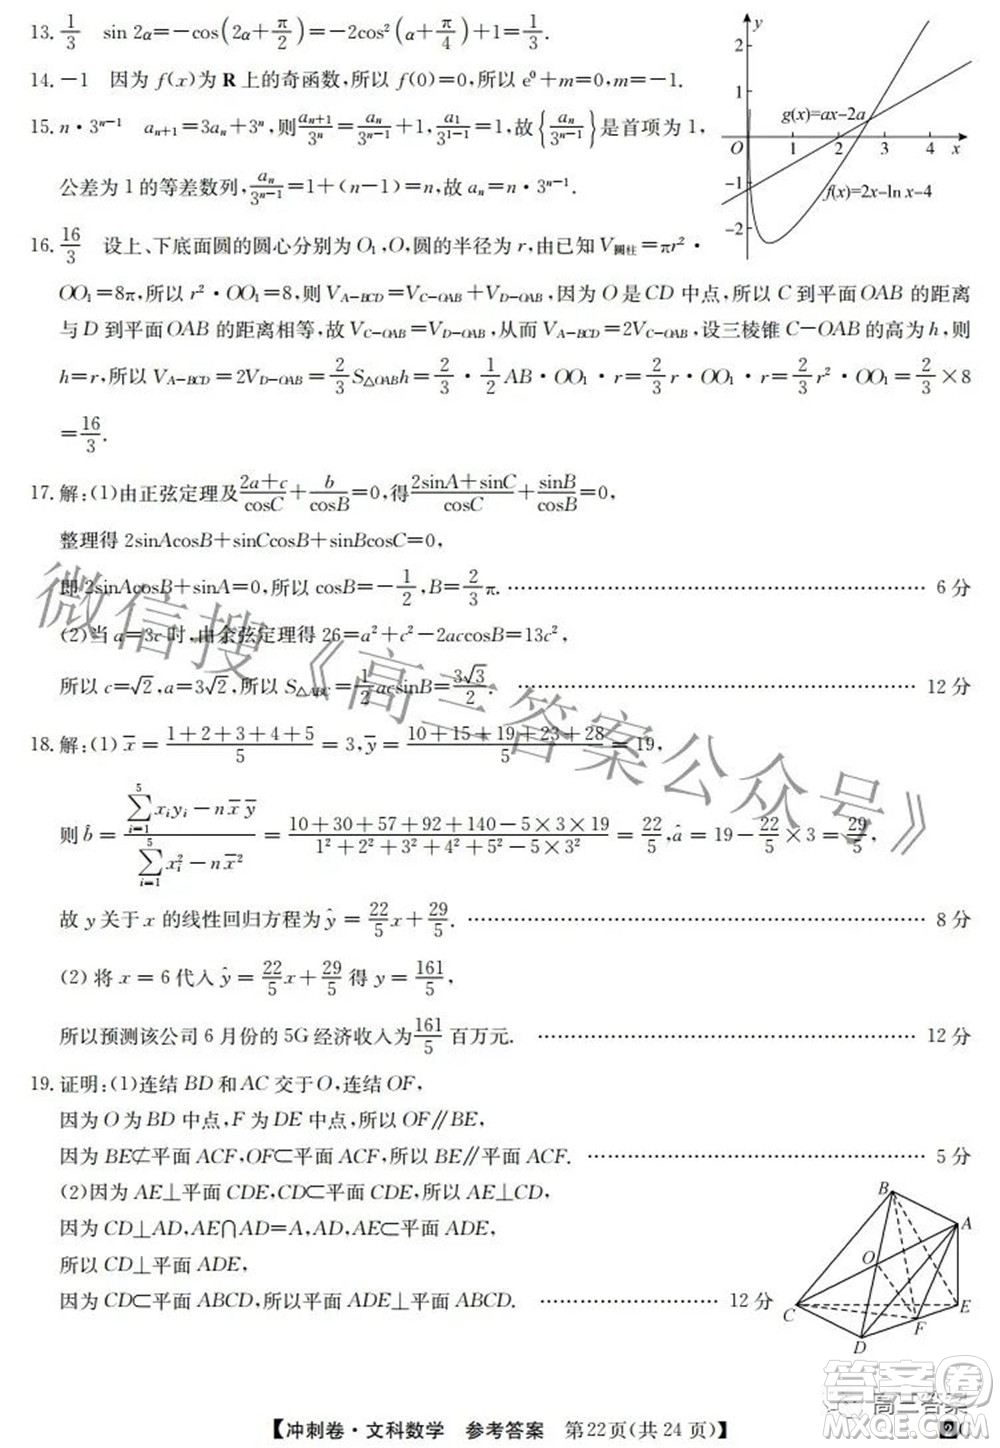 13. 1/3 sin 2α=−cos(2α+π/2)=−2cos²(α+π/4)+1=1/3.
14. −1 因为 f(x)为 R 上的奇函数,所以 f(0)=0,所以 e⁰+m=0,m=−1.
15. n·3ⁿ⁻¹ aₙ₊₁=3aₙ+3ⁿ,则aₙ₊₁/3ⁿ=aₙ/3ⁿ⁻¹+1,a₁/3¹⁻¹=1,故{aₙ/3ⁿ⁻¹}是首项为 1,
公差为 1 的等差数列,aₙ/3ⁿ⁻¹=1+(n−1)=n,故 aₙ=n·3ⁿ⁻¹.
y
2
1
g(x)=ax−2a
O 1 2 3 4 x
−1
f(x)=2x−ln x−4
−2
16. 16/3 设上、下底面圆的圆心分别为 O₁,O,圆的半径为 r,由已知 V圆柱=πr²·
OO₁=8π,所以 r²·OO₁=8,则 V_A−BCD=V_C−OAB+V_D−OAB,因为 O 是 CD 中点,所以 C 到平面 OAB 的距离
与 D 到平面 OAB 的距离相等,故 V_C−OAB=V_D−OAB,从而 V_A−BCD=2V_C−OAB,设三棱锥 C−OAB 的高为 h,则
h=r,所以 V_A−BCD=2V_D−OAB=2/3 S△OAB h=2/3·1/2 AB·OO₁·r=2/3 r·OO₁·r=2/3 r²·OO₁=2/3×8
=16/3.
17. 解:(1)由正弦定理及(2a+c)/cosC+b/cosB=0,得(2sinA+sinC)/cosC+sinB/cosB=0,
整理得 2sinAcosB+sinCcosB+sinBcosC=0,
即 2sinAcosB+sinA=0,所以 cosB=−1/2,B=2/3π. ……………… 6 分
(2)当 a=3c 时,由余弦定理得 26=a²+c²−2accosB=13c²,
所以 c=√2,a=3√2,所以 S△ABC=1/2 acsinB=3√3/2. ……………… 12 分
18. 解:(1) x̄=(1+2+3+4+5)/5=3,ȳ=(10+15+19+23+28)/5=19,
则 b̂=(∑⁵ᵢ₌₁xᵢyᵢ−n x̄ ȳ)/(∑⁵ᵢ₌₁xᵢ²−n x̄²)=(10+30+57+92+140−5×3×19)/(1²+2²+3²+4²+5²−5×3²)=22/5,â=19−22/5×3=29/5,
故 y 关于 x 的线性回归方程为 ŷ=22/5 x+29/5. ……………… 8 分
(2) 将 x=6 代入 ŷ=22/5 x+29/5 得 y=161/5,
所以预测该公司 6 月份的 5G 经济收入为161/5 百万元. ……………… 12 分
19. 证明:(1)连结 BD 和 AC 交于 O,连结 OF,
因为 O 为 BD 中点,F 为 DE 中点,所以 OF∥BE,
因为 BE⊄平面 ACF,OF⊂平面 ACF,所以 BE∥平面 ACF. ……………… 5 分
(2)因为 AE⊥平面 CDE,CD⊂平面 CDE,所以 AE⊥CD,
因为 CD⊥AD,AE∩AD=A,AD,AE⊂平面 ADE,
所以 CD⊥平面 ADE,
因为 CD⊂平面 ABCD,所以平面 ADE⊥平面 ABCD. ……………… 12 分
B
A
O
C
E
F
D
微信搜《高三答案公众号》
答案卷
高三答案
【冲刺卷·文科数学 参考答案 第22页(共 24 页)】